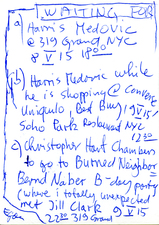 WAITING FOR
a) Harris Medovic
@ 319 Grand NYC
8 V 15 18
b) Harris Medovic while
he is shopping @ Converse
Uniqulo, Best Buy
Soho Park Restaurant NYC
9 V 15
c) Christopher Hart Chambers
to go to Burned Neighbor
Bernd Naber B-day party
(where i totally unexpected
met Jill Clark 9 V 15
22 30 319 Grand